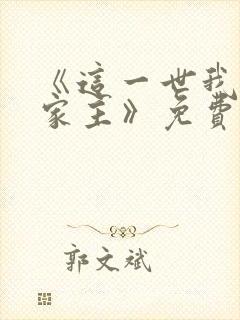 《這一世我
家主》免費
郭文斌